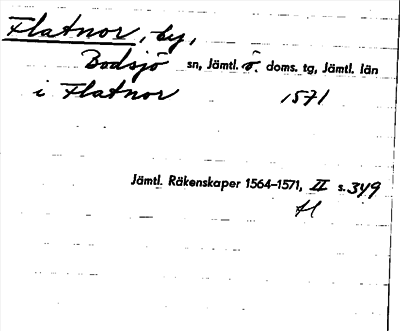 Flatnor, by,
Bodsjö sn, Jämtl. ö. doms. tg, Jämtl. län
i Flatnor 1571
Jämtl. Räkenskaper 1564–1571, II s. 349